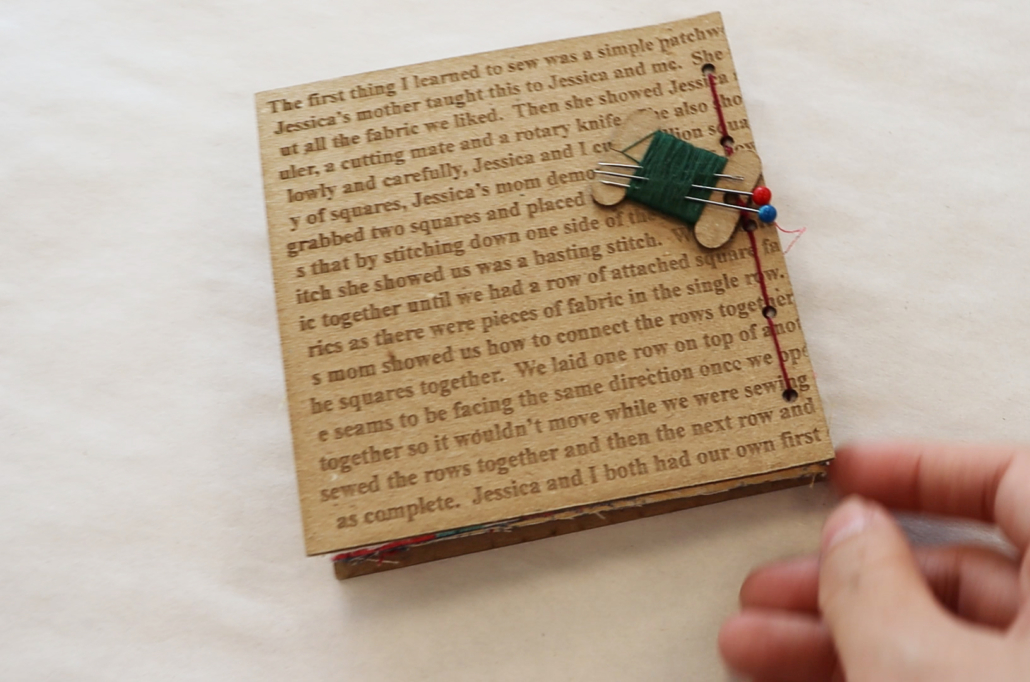 The first thing I learned to sew was a simple patchw
Jessica's mother taught this to Jessica and me. She
ut all the fabric we liked. Then she showed Jessica
uler, a cutting mate and a rotary knife. he also sho
lowly and carefully, Jessica and I cu llion squa
y of squares, Jessica's mom demo
grabbed two squares and placed
s that by stitching down one side of the
itch she showed us was a basting stitch. W
ic together until we had a row of attached square fa
rics as there were pieces of fabric in the single row.
s mom showed us how to connect the rows together
he squares together. We laid one row on top of anot
e seams to be facing the same direction once we ope
together so it wouldn't move while we were sewing
sewed the rows together and then the next row and
as complete. Jessica and I both had our own first